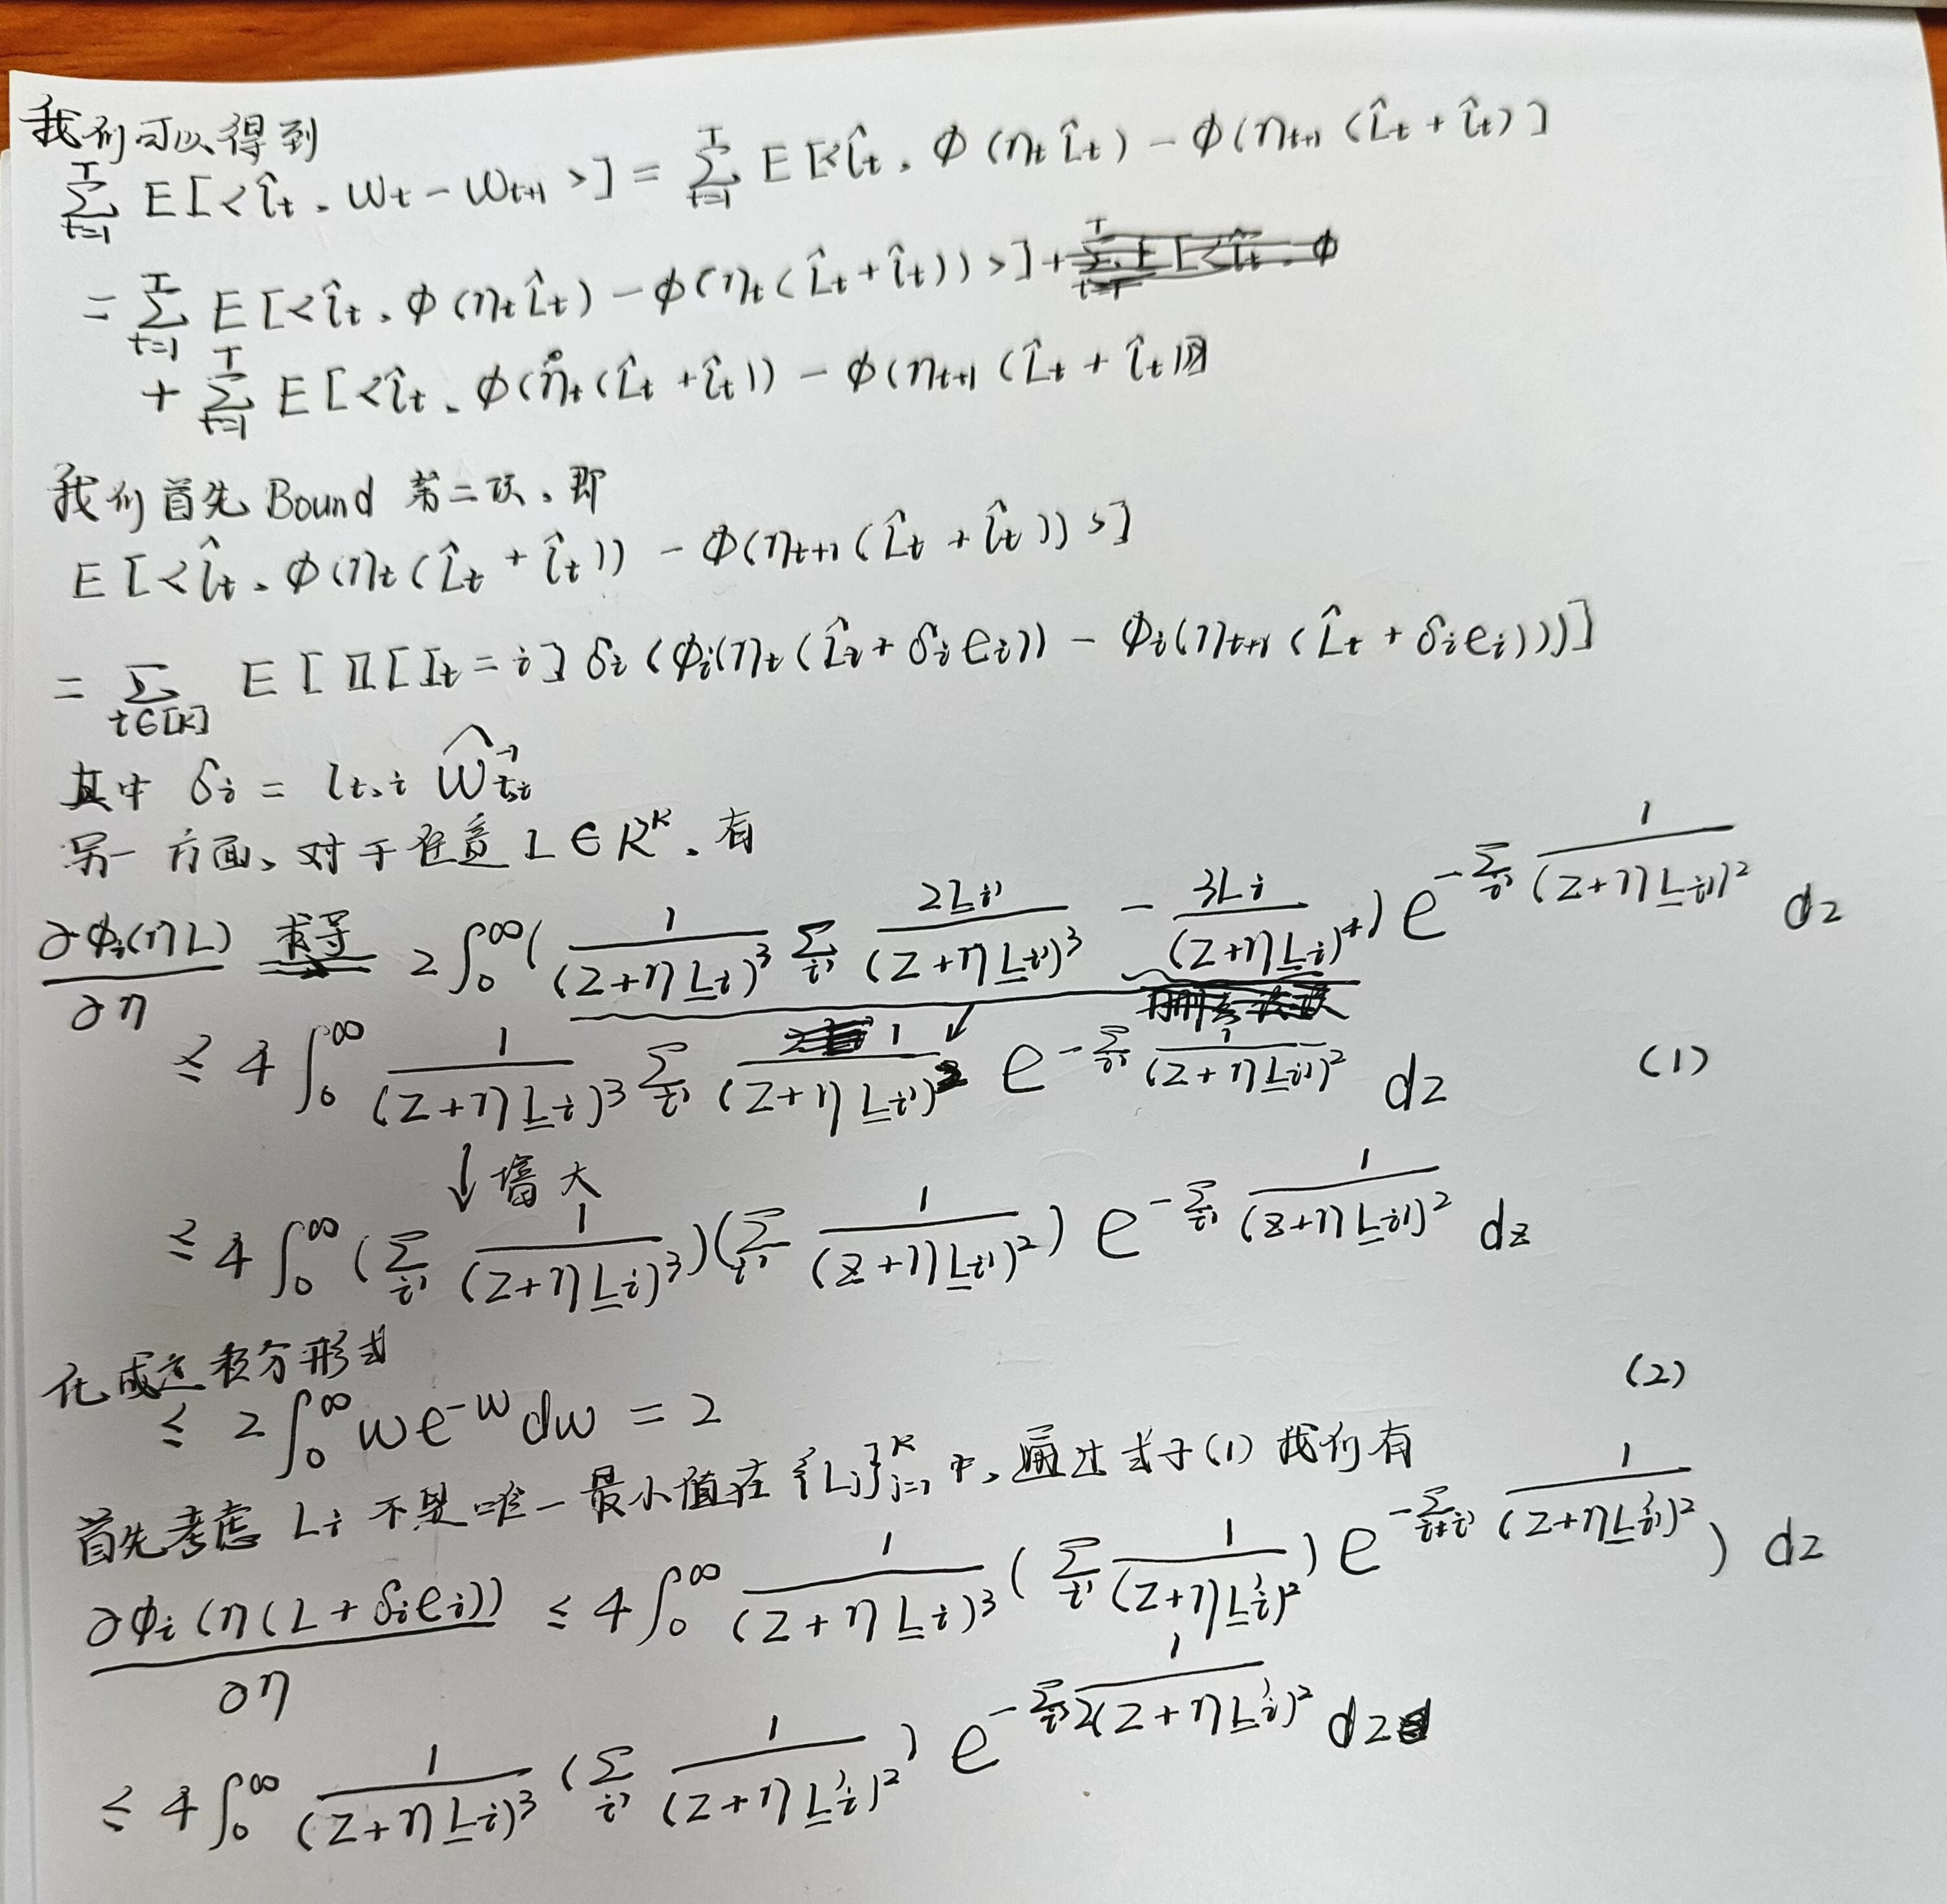 我们可以得到
$\sum_{t=1}^{T} E[<\hat{l}_t, w_t - w_{t+1}>] = \sum_{t=1}^{T} E[<\hat{l}_t, \phi(\eta_t \hat{L}_t) - \phi(\eta_{t+1}(\hat{L}_t + \hat{l}_t)>]$
$= \sum_{t=1}^{T} E[<\hat{l}_t, \phi(\eta_t \hat{L}_t) - \phi(\eta_t(\hat{L}_t + \hat{l}_t))>] +$
$+ \sum_{t=1}^{T} E[<\hat{l}_t, \phi(\eta_t(\hat{L}_t + \hat{l}_t)) - \phi(\eta_{t+1}(\hat{L}_t + \hat{l}_t))]$
我们首先 Bound 第二项、即
$E[<\hat{l}_t, \phi(\eta_t(\hat{L}_t + \hat{l}_t)) - \phi(\eta_{t+1}(\hat{L}_t + \hat{l}_t))>]$
$= \sum_{t \in [K]} E[\mathbb{I}[I_t = i] \delta_i (\phi_i(\eta_t(\hat{L}_t + \delta_i e_i)) - \phi_i(\eta_{t+1}(\hat{L}_t + \delta_i e_i)))]$
其中 $\delta_i = l_{t,i} \widehat{w_{t,i}^{-1}}$
另一方面、对于任意 $L \in R^K$、有
$\frac{\partial \phi_i(\eta L)}{\partial \eta}$ 求导 $2\int_0^\infty (\frac{1}{(z+\eta \underline{L}_i)^3} \sum_{i'} \frac{2\underline{L}_{i'}}{(z+\eta \underline{L}_{i'})^3} - \frac{3\underline{L}_i}{(z+\eta \underline{L}_i)^4}) e^{-\sum_{i'} \frac{1}{(z+\eta \underline{L}_{i'})^2}} dz$
$\leq 4\int_0^\infty \frac{1}{(z+\eta \underline{L}_i)^3} \sum_{i'} \frac{1}{(z+\eta \underline{L}_{i'})^2} e^{-\sum_{i'} \frac{1}{(z+\eta \underline{L}_{i'})^2}} dz$ (1)
↓ 增大
$\leq 4\int_0^\infty (\sum_{i'} \frac{1}{(z+\eta \underline{L}_i)^3})(\sum_{i'} \frac{1}{(z+\eta \underline{L}_{i'})^2}) e^{-\sum_{i'} \frac{1}{(z+\eta \underline{L}_{i'})^2}} dz$
化成定积分形式
$\leq 2\int_0^\infty w e^{-w} dw = 2$ (2)
首先考虑 $L_i$ 不是唯一最小值在 $\{L_j\}_{j=1}^{K}$ 中、通过式子(1) 我们有
$\frac{\partial \phi_i(\eta(L + \delta_i e_i))}{\partial \eta} \leq 4\int_0^\infty \frac{1}{(z+\eta \underline{L}_i)^3} (\sum_{i'} \frac{1}{(z+\eta \underline{L}_i')^2}) e^{-\sum_{i \neq i'} \frac{1}{(z+\eta \underline{L}_i')^2}}) dz$
$\leq 4\int_0^\infty \frac{1}{(z+\eta \underline{L}_i)^3} (\sum_{i'} \frac{1}{(z+\eta \underline{L}_i')^2}) e^{-\sum_{i'} \frac{1}{2(z+\eta \underline{L}_i')^2}} dz$